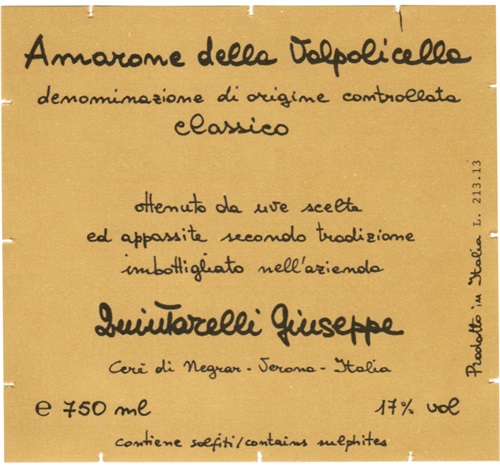 Amarone della Valpolicella
denominazione di origine controllata
classico
ottenuto da uve scelte
ed appassite secondo tradizione
imbottigliato nell'azienda
Quintarelli Giuseppe
Cerè di Negrar - Verona - Italia
e 750 ml
17% vol
contiene solfiti/contains sulphites
Prodotto in Italia L. 213.13